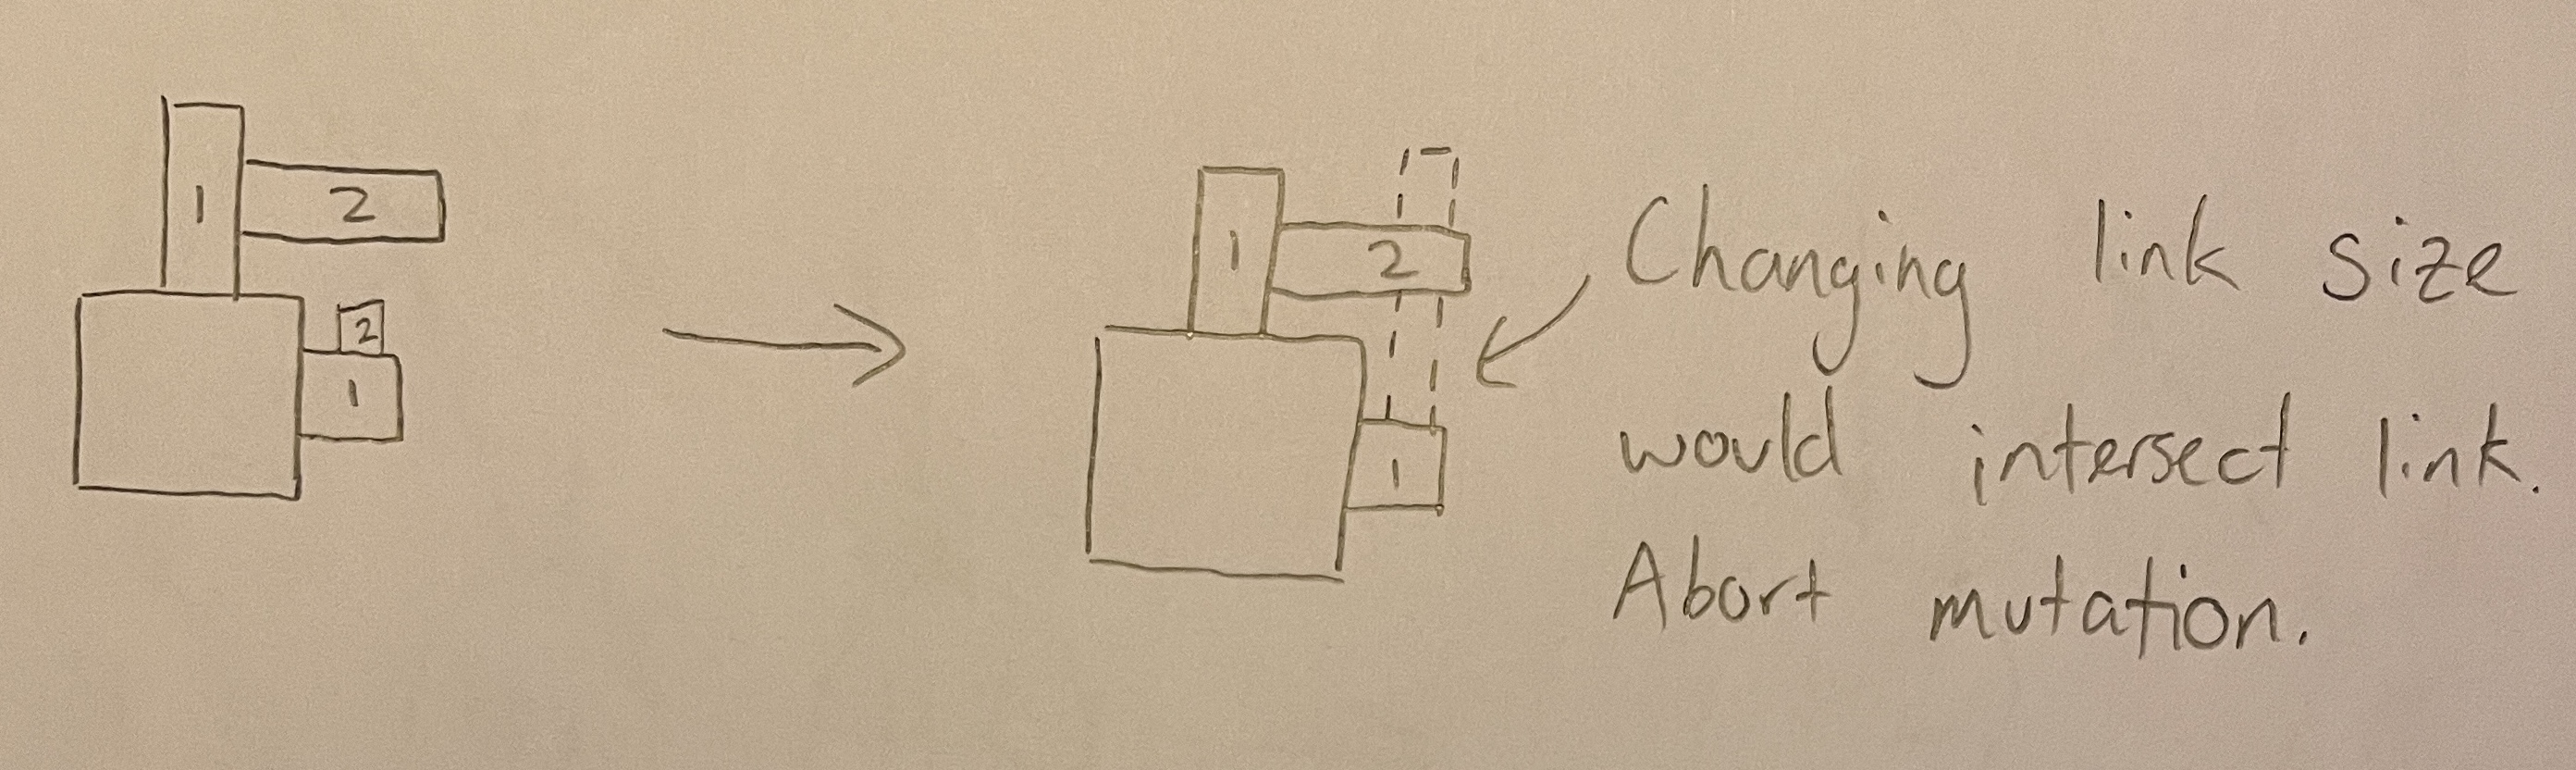 1 2
2
1
1 2
1
Changing link size
would intersect link.
Abort mutation.